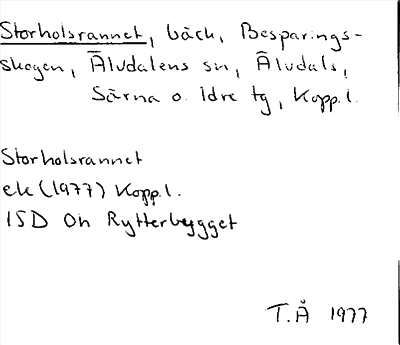 Storholsrannet, bäck, Besparings-
skogen, Älvdalens sn, Älvdals,
Särna o. Idre tg, Kopp.l.
Storholsrannet
ek (1977) Kopp.l.
15D Oh Rytterbygget
T.Å 1977